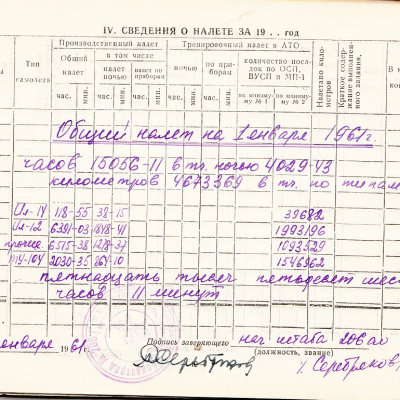 IV. СВЕДЕНИЯ О НАЛЕТЕ ЗА 19 . . год
Тип самолета
Производственный налет
Общий налет
час. мин.
в том числе
налет ночью
час. мин.
налет по приборам
час. мин.
Тренировочный налет в АТО
ночью
час. мин.
по приборам
час. мин.
количество посадок по ОСП, ВУСП и МП-1
по миниму му № 1
по миниму му № 2
Налетано километров
Краткое содержание выполненного задания,
Общий налет на 1 января 1961г.
часов 15056-11 в тч. ночью 4029-43
километров 4673369 в тч. по типам
Ил-14 118-55 38-15 39682
Ил-12 6391-03 1848-41 1993196
прочие 6515-38 1278-37 1093529
ТУ-104 2030-35 864-10 1546962
пятнадцать тысяч пятьдесят шес
часов 11 минут
января 1961 г.
Подпись заверяющего
нач штаба 206 ло
(должность, звание)
/. Серебряков